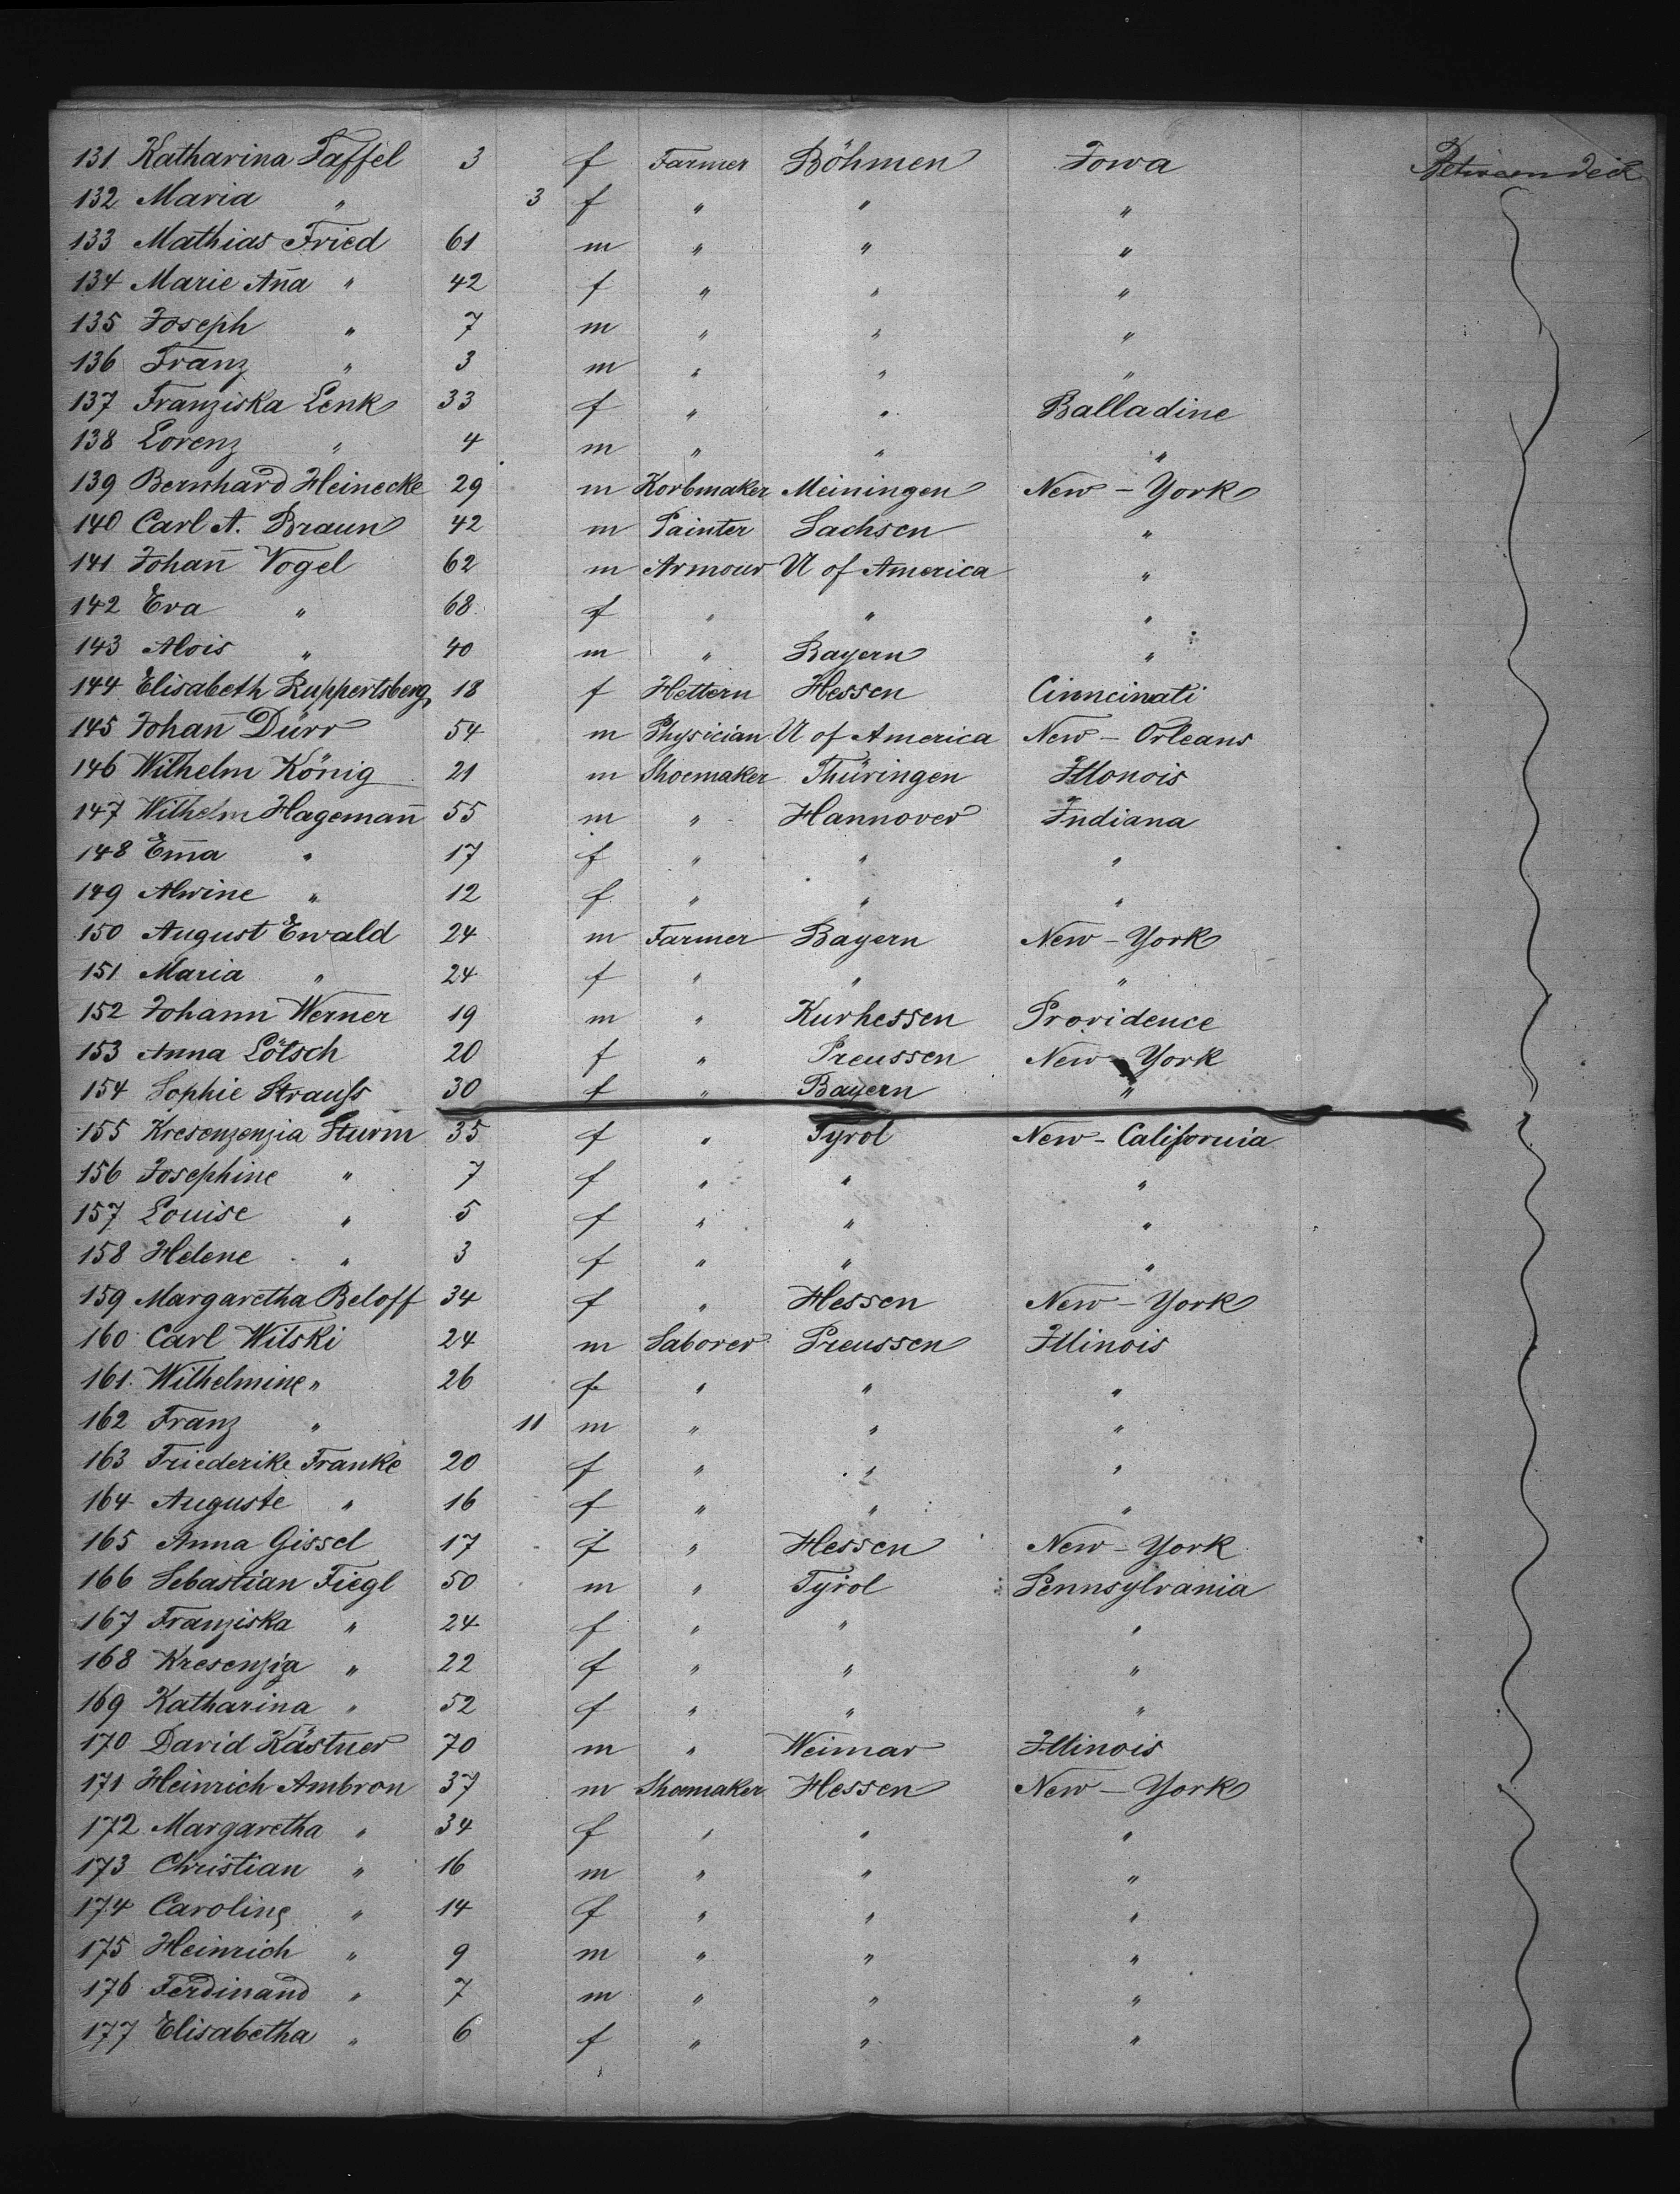 131 Katharina Taffel 3 f Farmer Böhmen Iowa Between deck
132 Maria " 3 f " " "
133 Mathias Fried 61 m " " "
134 Marie Aña " 42 f " " "
135 Joseph " 7 m " " "
136 Franz " 3 m " " "
137 Franziska Lenk 33 f " " Balladine
138 Lorenz " 4 m " " "
139 Bernhard Heinecke 29 m Korbmaker Meiningen New-York
140 Carl A. Braun 42 m Painter Sachsen "
141 Johan̄ Vogel 62 m Armour U of America "
142 Eva " 68 f " " "
143 Alois " 40 m " Bayern "
144 Elisabeth Ruppertsberg 18 f Hettern Hessen Cinncinati
145 Johan̄ Dürr 54 m Physician U of America New-Orleans
146 Wilhelm König 21 m Shoemaker Thüringen Illonois
147 Wilhelm Hageman̄ 55 m " Hannover Indiana
148 Em̄a " 17 f " " "
149 Alwine " 12 f " " "
150 August Ewald 24 m Farmer Bayern New-York
151 Maria " 24 f " " "
152 Johann Werner 19 m " Kurhessen Providence
153 Anna Lötsch 20 f " Preussen New-York
154 Sophie Strauss 30 f " Bayern "
155 Kresenzenzia Sturm 35 f " Tyrol New-California
156 Josephine " 7 f " " "
157 Louise " 5 f " " "
158 Helene " 3 f " " "
159 Margaretha Beloff 34 f " Hessen New-York
160 Carl Witski 24 m Laborer Preussen Illinois
161 Wilhelmine " 26 f " " "
162 Franz " 11 m " " "
163 Friederike Franke 20 f " " "
164 Auguste " 16 f " " "
165 Anna Gissel 17 f " Hessen New-York
166 Sebastian Fiegl 50 m " Tyrol Pennsylvania
167 Franziska " 24 f " " "
168 Kresenzia " 22 f " " "
169 Katharina " 52 f " " "
170 David Kästner 70 m " Weimar Illinois
171 Heinrich Ambron 37 m Shoemaker Hessen New-York
172 Margaretha " 34 f " " "
173 Christian " 16 m " " "
174 Caroline " 14 f " " "
175 Heinrich " 9 m " " "
176 Ferdinand " 7 m " " "
177 Elisabetha " 6 f " " "